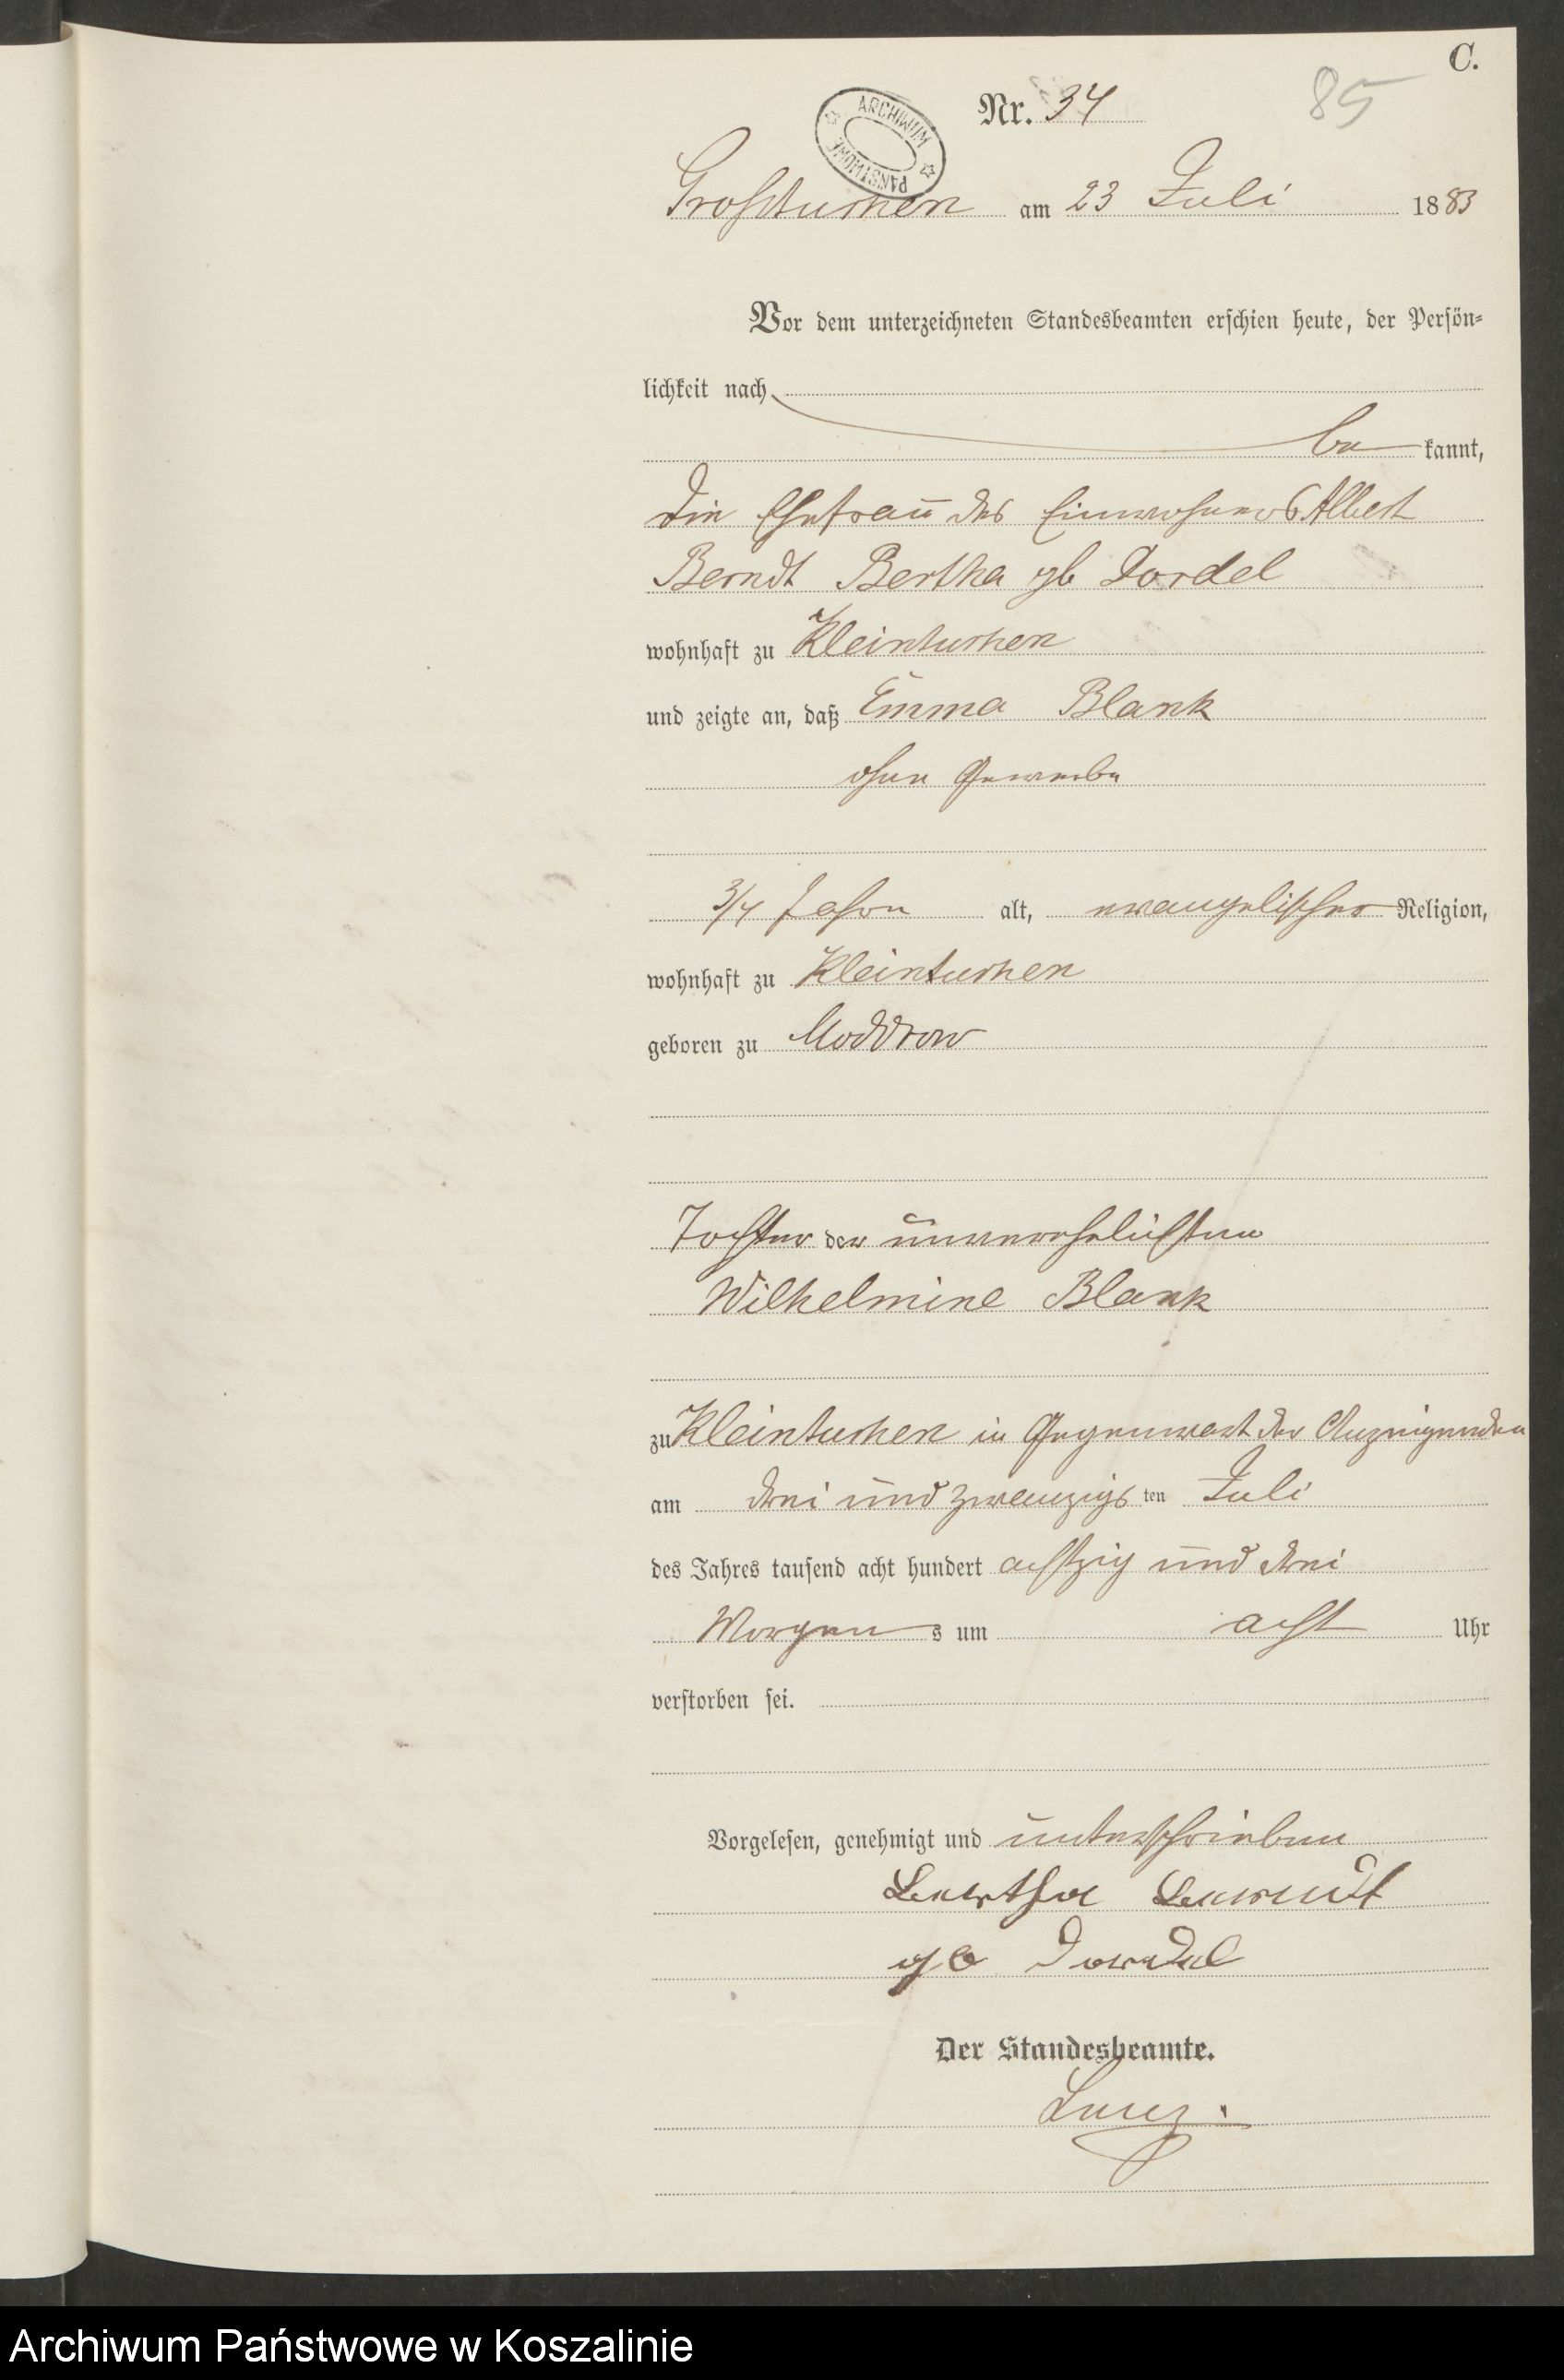 C.
85
Nr. 34
ARCHIWUM PAŃSTWOWE
Grosstuchen am 23 Juli 1883
Vor dem unterzeichneten Standesbeamten erschien heute, der Persön-
lichkeit nach
be kannt,
die Ehefrau des Einwohners Albert
Berndt Bertha gb Dordel
wohnhaft zu Kleintuchen
und zeigte an, daß Emma Blank
ohne Gewerbe
3/4 Jahre alt, evangelischer Religion,
wohnhaft zu Kleintuchen
geboren zu Moddrow
Tochter der unverehelichten
Wilhelmine Blank
zu Kleintuchen in Gegenwart der Anzeigenden
am drei und zwanzigs ten Juli
des Jahres tausend acht hundert achtzig und drei
Morgen s um acht Uhr
verstorben sei.
Vorgelesen, genehmigt und unterschrieben
Bertha Berndt
gb Dordel
Der Standesbeamte.
Archiwum Państwowe w Koszalinie